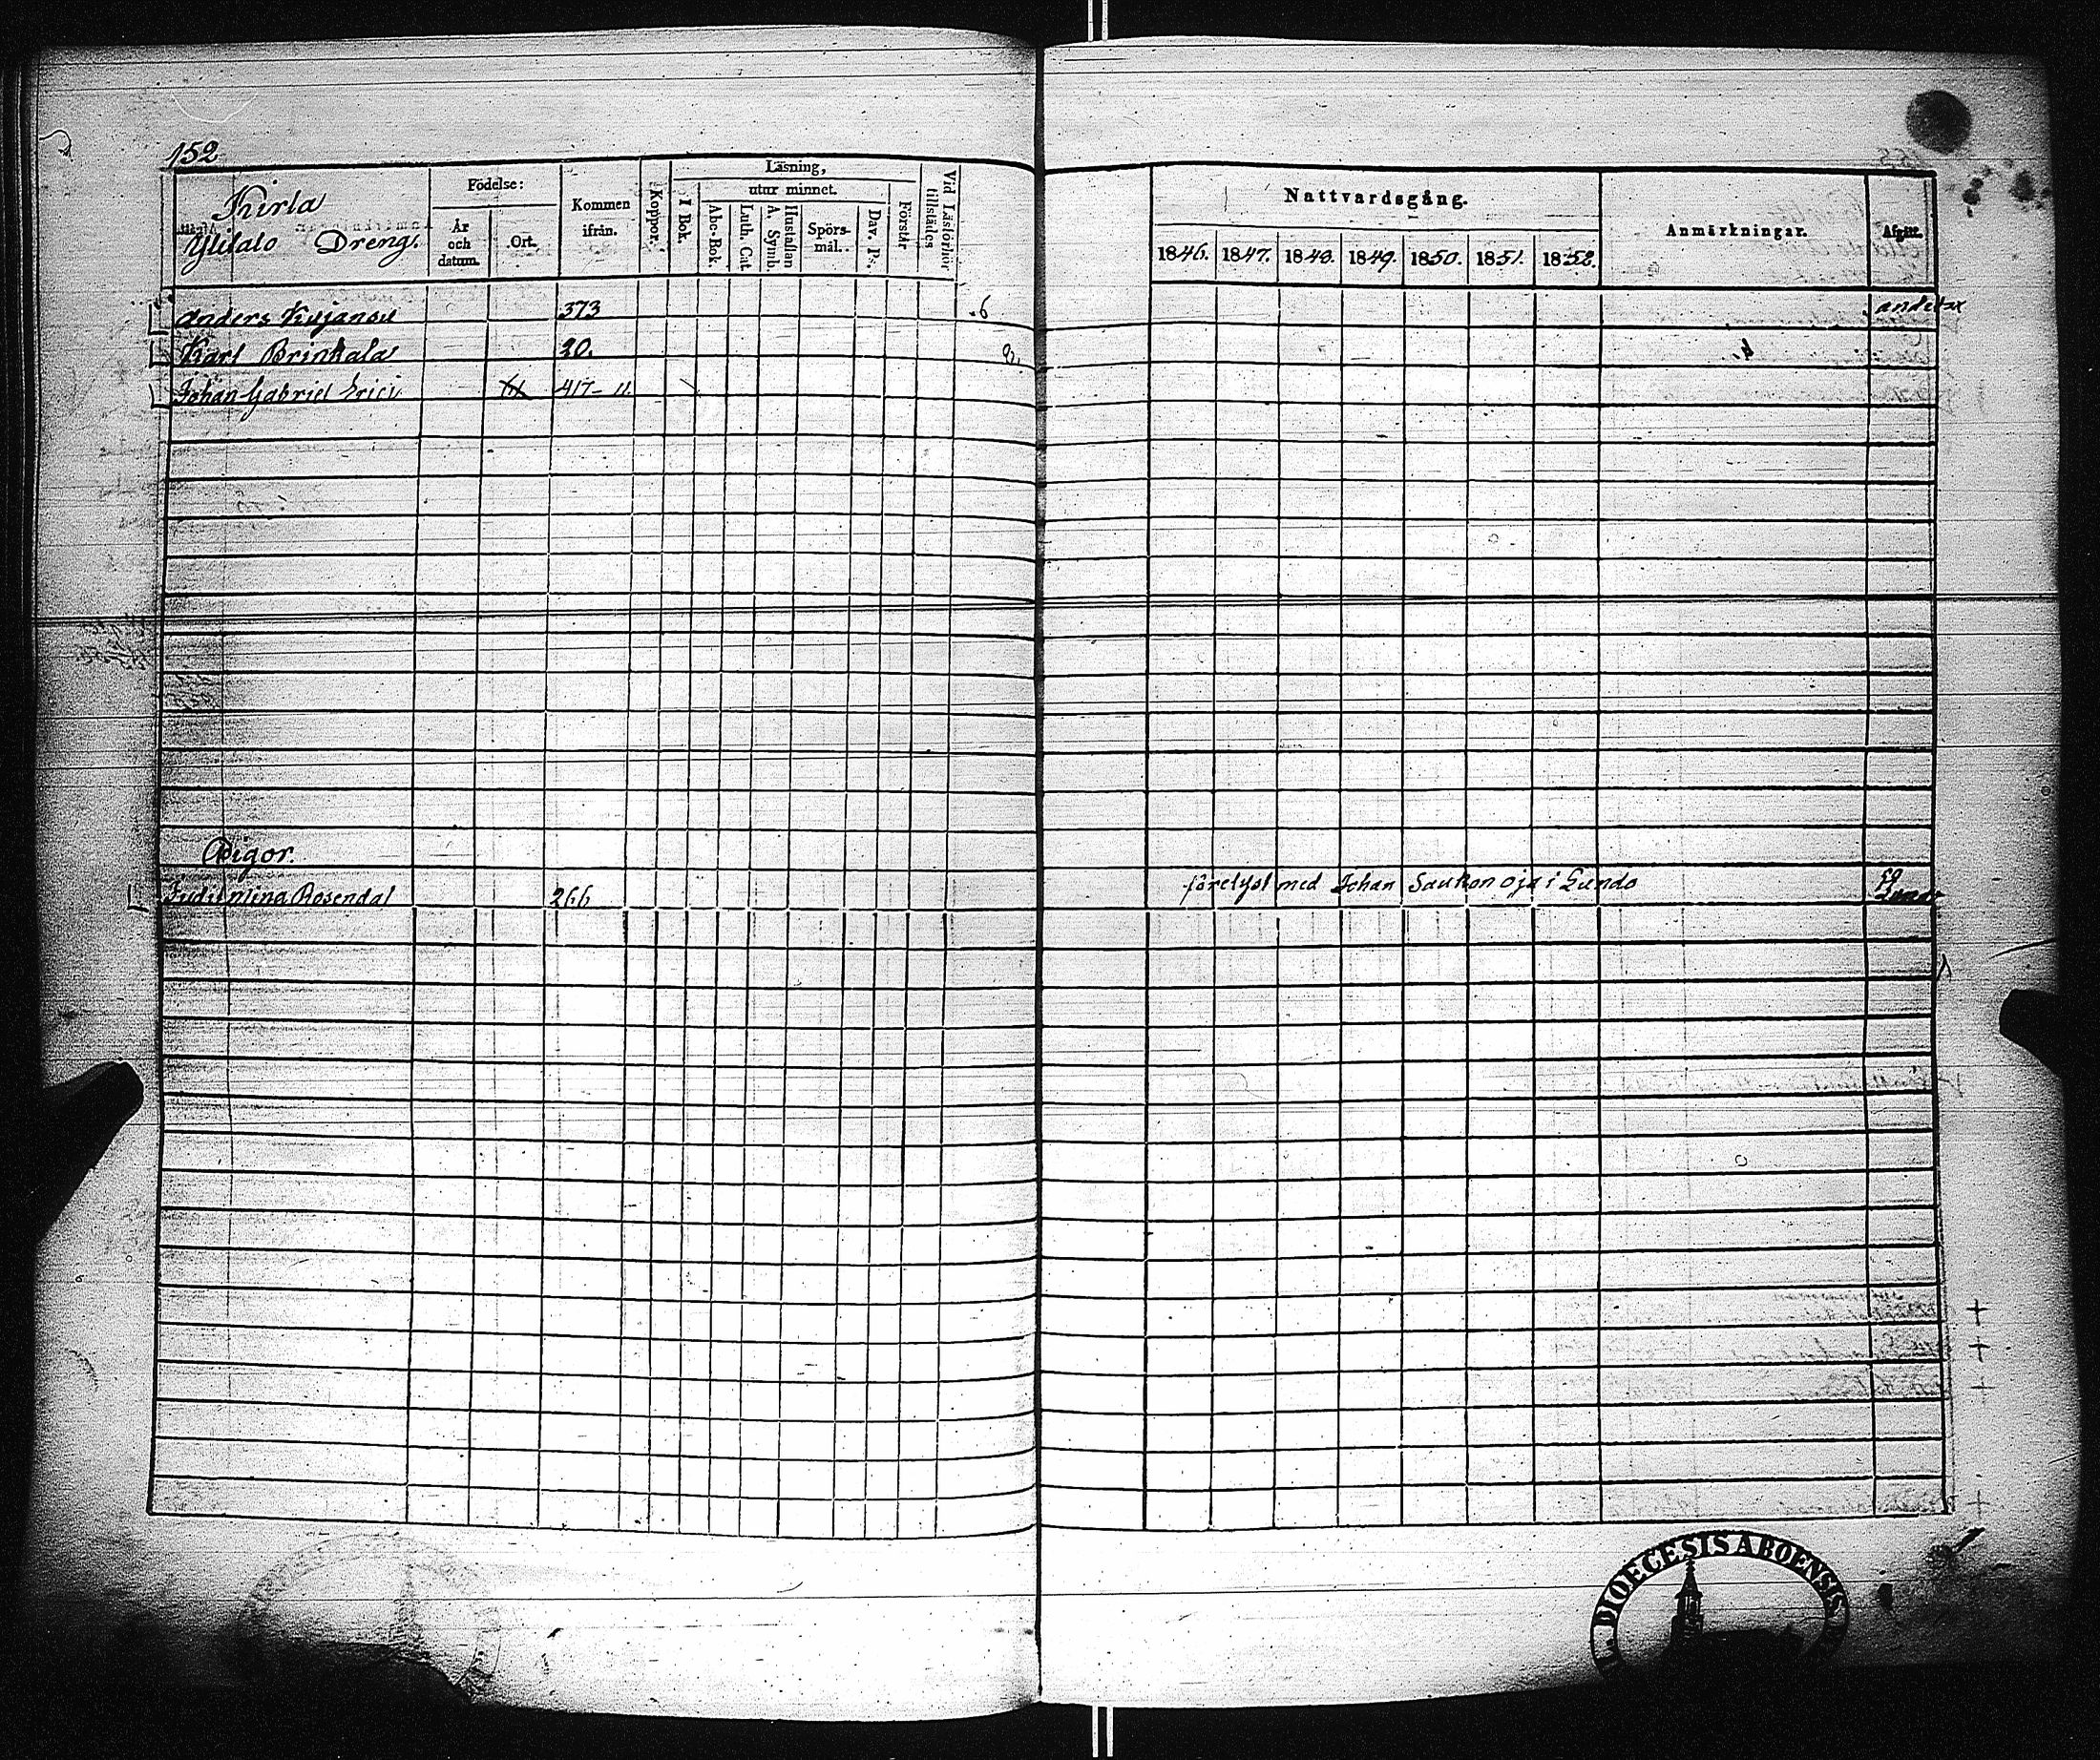 152
Kirla
Ylitalo Drengr.
Födelse:
År och datum.
Ort.
Kommen ifrån.
Koppor.
Läsning,
I Bok.
utur minnet.
Abc-Bok.
Luth. Cat.
A. Symb.
Hustaflan
Spörs-mål.
Dav. Ps.
Förstår
Vid Läsförhör tillstädes
Nattvardsgång.
1846. 1847. 1848. 1849. 1850. 1851. 1852.
Anmärkningar.
Afgått.
Anders Kujansu 373 6
Karl Brinkala 20.
Johan Gabriel Erici 417-11
Pigor.
Judit Mina Rosendal 266 förelyst med Johan Saukonoja i Lundo
Lundo
DIOECESIS ABOENSIS